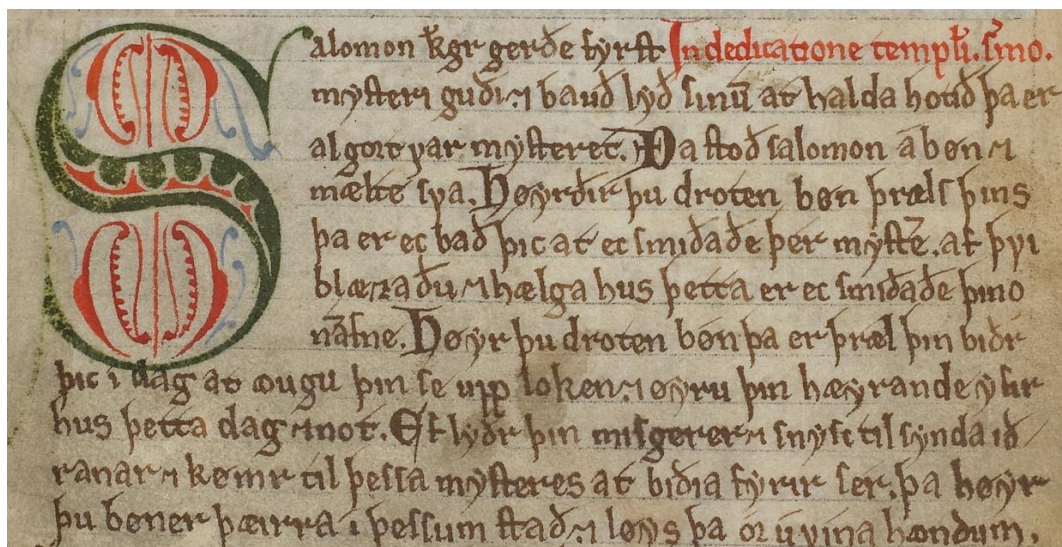 Salomon kgr gerðe fyrst In dedicatione templi. sermo.
mysteri guði ⁊ bauð lyð sinū at halda hotið þa er
algort var mysteret. Þa stoð salomon a bøn ⁊
mælte sva. Høyrðir þu droten bøn þræls þins
þa er ec bað þic at ec smiðaðe þer mysté. af þvi
blæzaðu ⁊ hælga hus þetta er ec smiðaðe þino
nāfne. Høyr þu droten bøn þa er þræl þin biðr
þic i dag at ꜹugu þin se upp loken ⁊ øyru þin hæyrande yfir
hus þetta dag ⁊ not. Ef lyðr þin misgerer ⁊ snysc til synda ið
ranar ⁊ kømr til þessa mysteres at biðia fyrir ser. þa høyr
þu bøner þæirra i þessum stað ⁊ løys þa or uvina hondum.